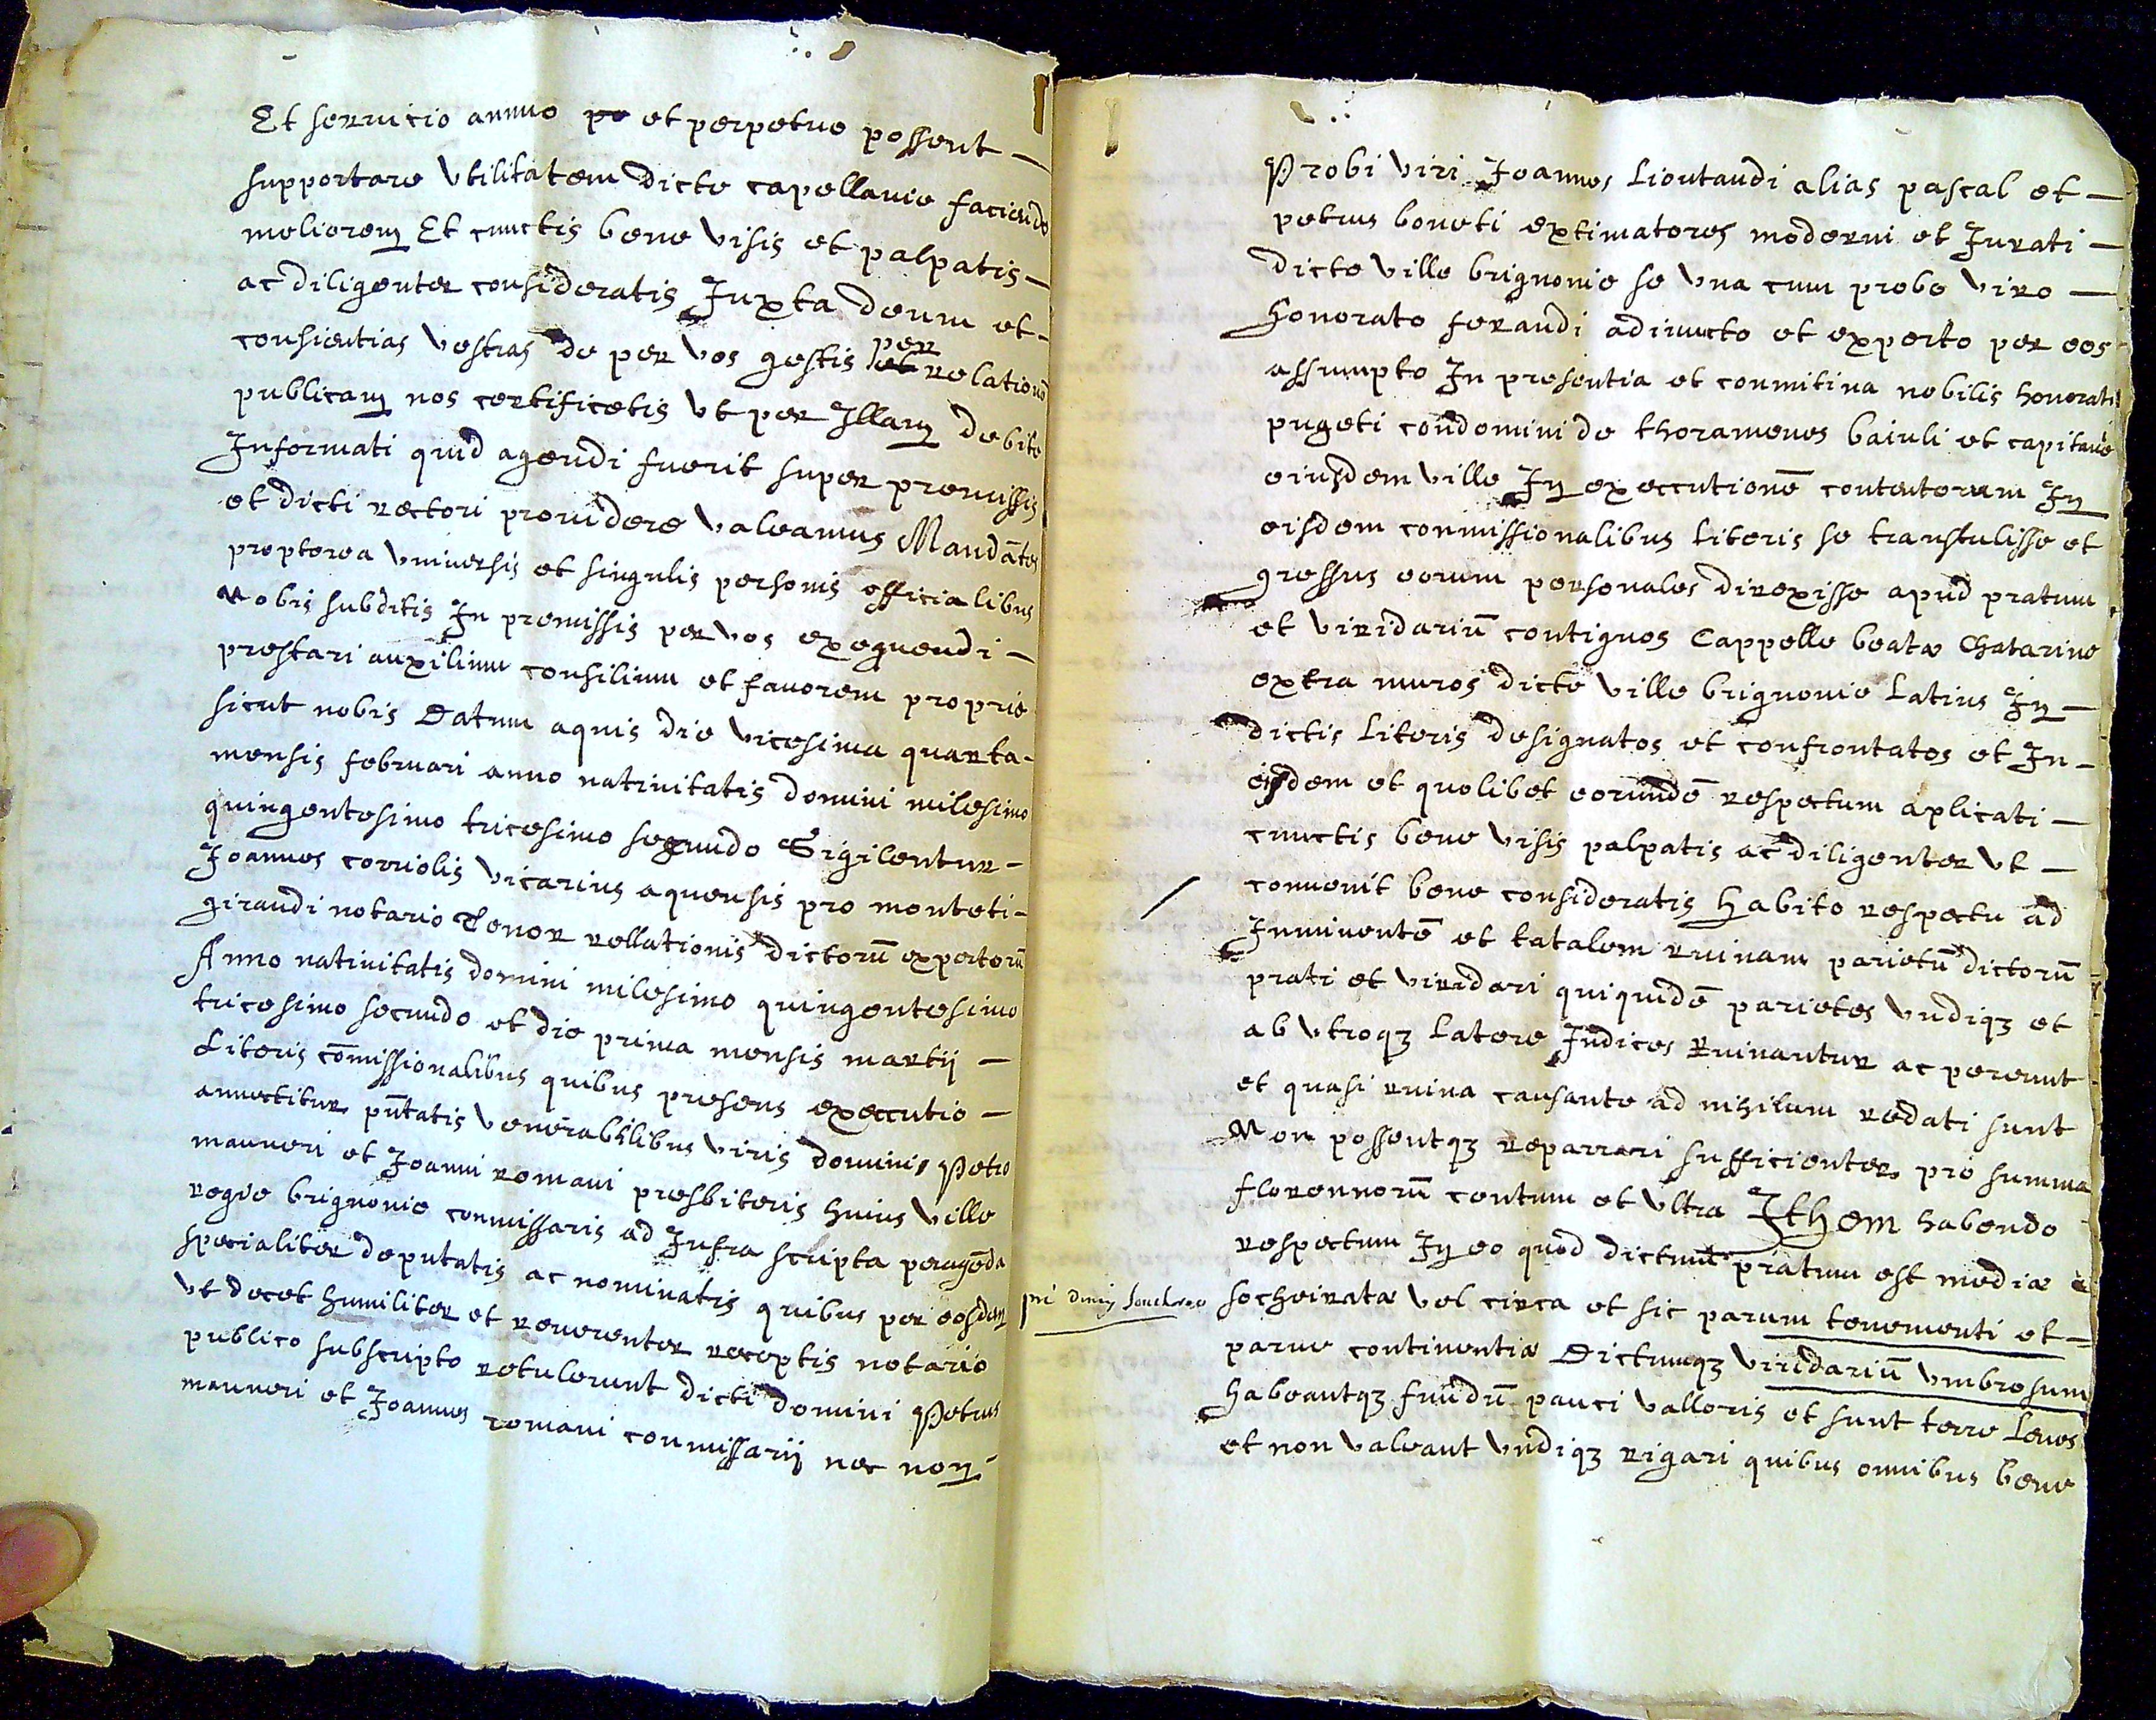 Et servicio annuo po et perpetuo possent
supportare Utilitatem dicte capellanie faciendo
meliorem Et cunctis bene Visis et palpatis
ac diligenter consideratis Juxta deum et
consientias Vestras de per Vos gestis per relationē
publicam nos certificetis Ut per Illam debite
Informati quid agendi fuerit super premissis
et dicti rectori providere Valeamus Mandātes
propterea Universis et singulis personis officialibus
Nobis subditis In premissis per Vos exequendi
prestari auxilium consilium et favorem proprie
sicut nobis Datum aquis die Vicesima quarta
mensis februari anno nativitatis domini milesimo
quingentesimo tricesimo segundo Sigilentur
Joannes corriolis Vicarius aquensis pro monteti
giraudi notario Tenor rellationis dictorū expertorū
Anno nativitatis domini milesimo quingentesimo
tricesimo secundo et die prima mensis martij
Literis cōmissionalibus quibus presens executio
annectitur pñtatis Venerabilibus Viris dominis Petro
mauneri et Joanni romani presbiteris huius Ville
regie brignonie commissaris ad Infra scripta peragēda
specialiter deputatis ac nominatis quibus per eosdem
Ut decet humiliter et reverenter receptis notario
publico subscripto retulerunt dicti domini Petrus
mauneri et Joannes romani commissarij nec non
Probi Viri Joannes Lioutaudi alias pascal et
petrus boneti extimatores moderni et Jurati
dicte Ville brignonie se Una cum probo Viro
honorato feraudi adiuncto et experto per eos
assumpto In presentia et commitiva nobilis honorati
pugeti condomini de thoramenes baiuli et capitanei
eiusdem Ville In executionē contentorum In
eisdem commissionalibus Literis se transtulisse et
gressus eorum personales direxisse apud pratum
et viridariū contiguos Cappelle beatæ Chatarine
extra muros dicte Ville brignonie Latius In
dictis Literis designatos et confrontatos et In
eisdem et quolibet eorumdē respectum aplicati
cunctis bene Visis palpatis ac diligenter Ut
convenit bene consideratis habito respectu ad
Inminentē et tatalem ruinam parietū dictorū
prati et viridari quiquidē parietes Undiqȝ et
ab Utroqȝ Latere Indices Ruinantur ac pereunt
et quasi ruina causante ad nihilum redati sunt
Non possentqȝ reparrari sufficienter pro summa
florennorū centum et Ultra Ithem habendo
respectum In eo quod dictum pratum est mediæ
socheiratæ Vel circa et sic parum tenementi et
parve continentiæ Dictumqȝ Viridariū Umbrosum
habeantqȝ fundū pauci Valloris et sunt terre Leves
et non Valeant Undiqȝ rigari quibus omnibus bene